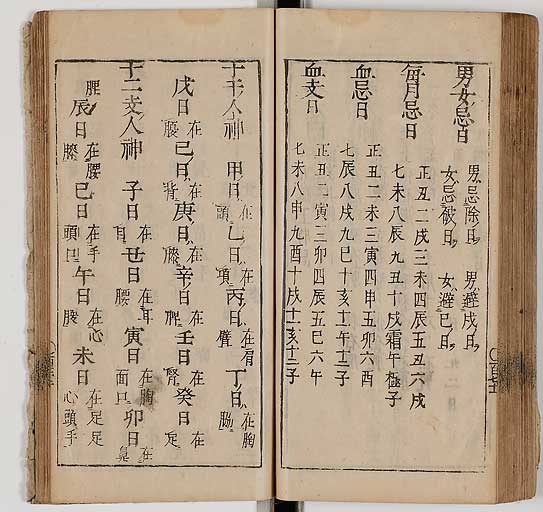 男女忌日
男忌除日 男避戌日
女忌破日 女避巳日
每月忌日
正丑二戌三未四辰五丑六戌
七未八辰九丑十戌霜午極子
血忌日
正丑二未三寅四申五卯六酉
七辰八戌九巳十亥十一午十二子
血支日
正丑二寅三卯四辰五巳六午
七未八申九酉十戌十一亥十二子
十干人神 甲日在頭 乙日在項 丙日在肩臂 丁日在胸脇
戊日在腹 己日在背 庚日在膝 辛日在脾 壬日在腎 癸日在足
十二支人神 子日在目 丑日在耳腰 寅日在胸面口 卯日在鼻
脾 辰日在腰膝 巳日在手頭口 午日在心腹 未日在足足心頭手